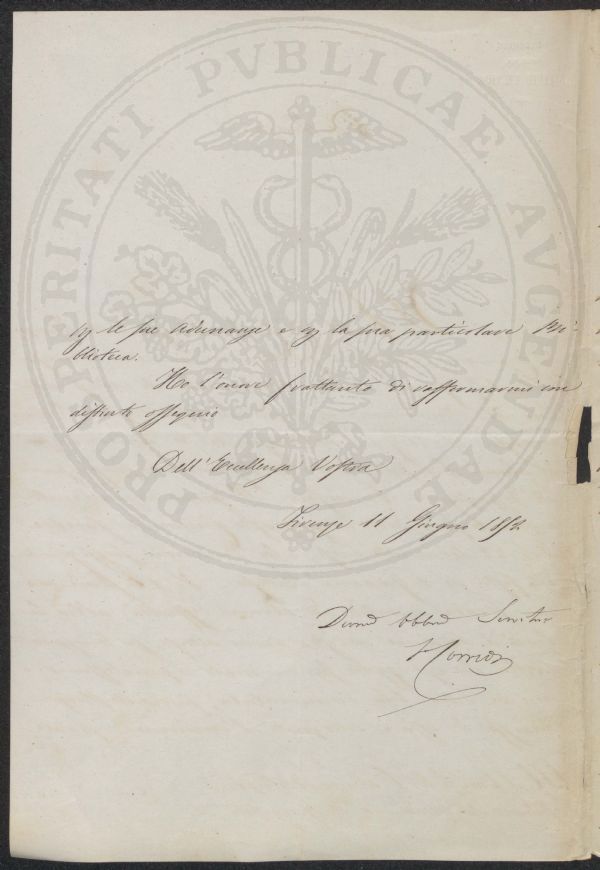 PROSPERITATI PVBLICAE AVGENDAE
le sue adunanze e la sua particolare Bi-
blioteca.
Ho l'onore frattanto di raffermarmi con
distinto ossequio
Dell'Eccellenza Vostra
Firenze 11 Giugno
Servitore